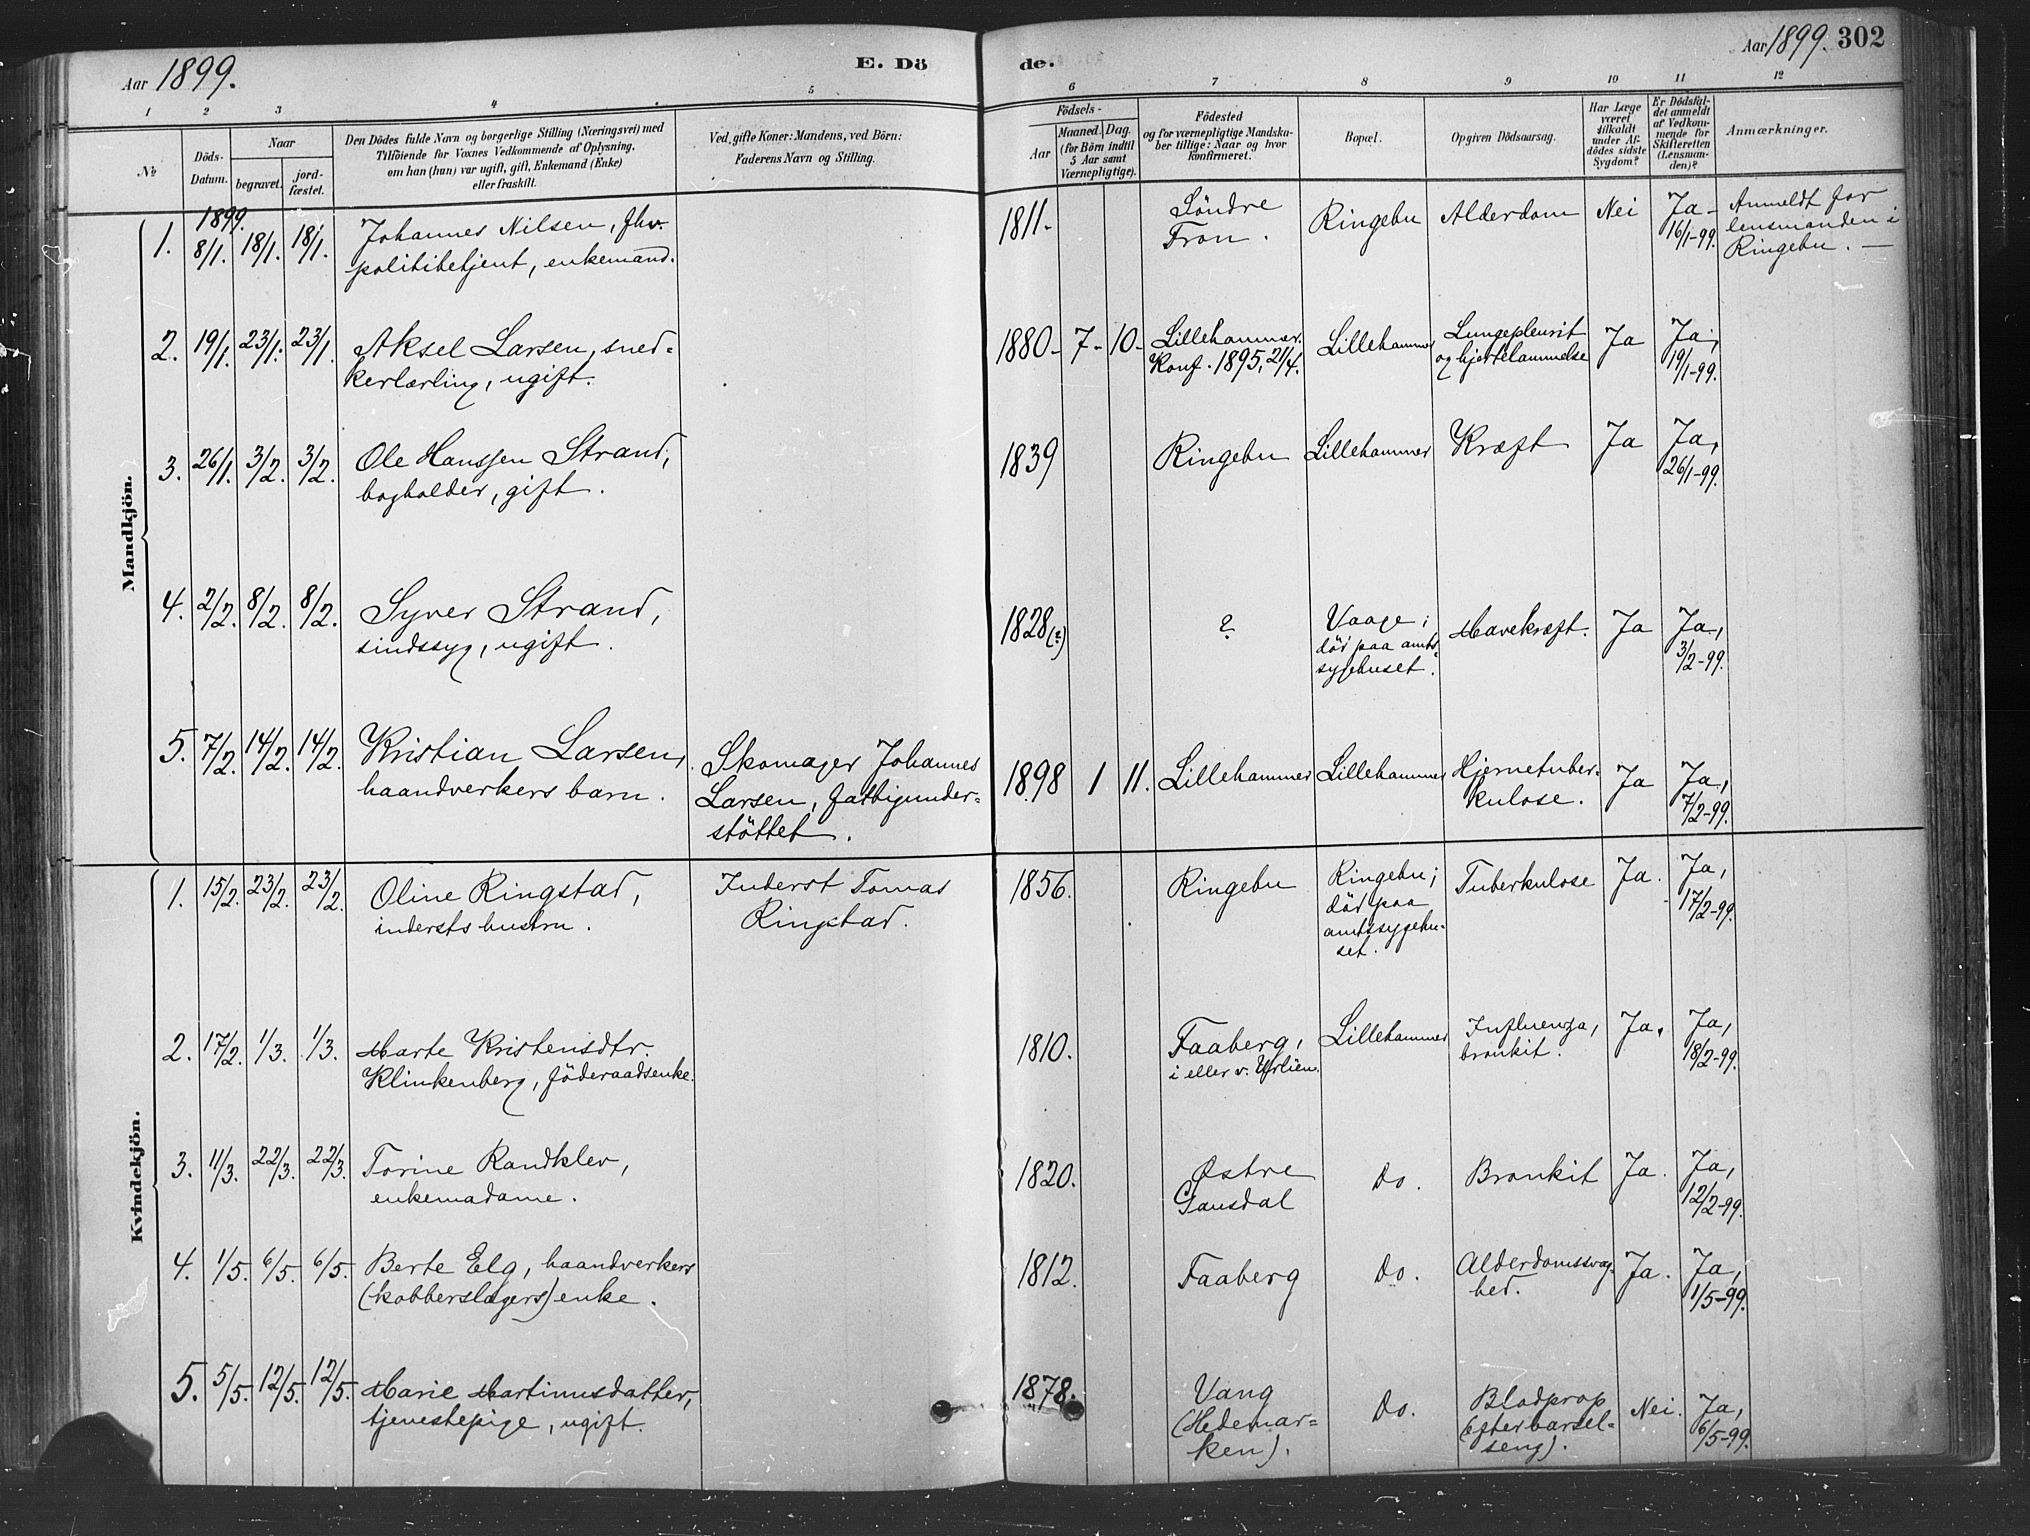 Aar 1899.
E. Dö
de.
Aar 1899. 302
1 2 3 4 5 6 7 8 9 10 11 12
№
Döds-
Datum.
Naar
begravet.
jord-
fæstet.
Den Dödes fulde Navn og borgerlige Stilling (Næringsvei) med
Tilföiende for Voxnes Vedkommende af Oplysning,
om han (hun) var ugift, gift, Enkemand (Enke)
eller fraskilt.
Ved gifte Koner: Mandens, ved Börn:
Faderens Navn og Stilling.
Födsels-
Aar
Maaned. Dag.
(for Börn indtil
5 Aar samt
Værnepligtige).
Födested
og for værnepligtige Mandska-
ber tillige: Naar og hvor
konfirmeret.
Bopæl.
Opgiven Dödsaarsag.
Har Læge
været
tilkaldt
under Af-
dödes sidste
Sygdom?
Er Dödsfal-
det anmeldt
af Vedkom-
mende for
Skifteretten
(Lensman-
den)?
Anmærkninger.
Mandkjön.
1899.
1. 8/1. 18/1. 18/1.
Johannes Nilsen, fhv.
politibetjent, enkemand.
1811.
Söndre
Fron.
Ringebu
Alderdom
Nei
Ja-
16/1-99.
Anmeldt for
lensmanden i
Ringebu. —
2. 19/1. 23/1. 23/1.
Aksel Larsen, sned-
kerlærling, ugift.
1880- 7- 10-
Lillehammer.
Konf. 1895, 21/4.
Lillehammer
Lungepleurit
og hjertelammelse
Ja
Ja,
19/1-99.
3. 26/1. 3/2. 3/2.
Ole Hanssen Strand,
bogholder, gift.
1839
Ringebu
Lillehammer
Kræft
Ja
Ja,
26/1-99.
4. 2/2. 8/2. 8/2.
Syver Strand,
sindssyg, ugift.
1828(?)
?
Vaage;
död paa amts-
sygehuset.
Mavekræft.
Ja
Ja,
3/2-99.
5. 7/2. 14/2. 14/2.
Kristian Larsen,
haandverkers barn.
Skomager Johannes
Larsen, fattigunder-
stöttet.
1898 1 11.
Lillehammer
Lillehammer
Hjernetuber-
kulose.
Ja
Ja,
7/2-99.
Kvindekjön.
1. 15/2. 23/2. 23/2.
Oline Ringstad,
inderts hustru.
Inderst Tomas
Ringstad.
1856.
Ringebu
Ringebu;
död paa
amtssygehu-
set.
Tuberkulose
Ja.
Ja,
17/2-99.
2. 17/2. 1/3. 1/3.
Marte Kristensdtr.
Klinkenberg, föderaadsenke.
1810.
Faaberg,
i eller v.
Lillehammer
Influenza,
bronkit.
Ja.
Ja,
18/2-99.
3. 11/3. 22/3. 22/3.
Torine Randklev,
enkemadame.
1820.
Østre
Gausdal
Do.
Bronkit
Ja.
Ja,
12/2-99.
4. 1/5. 6/5. 6/5.
Berte Elg, haandverkers
(kobberslagers) enke.
1812.
Faaberg
Do.
Alderdomssvag-
hed.
Ja.
Ja,
1/5-99.
5. 5/5. 12/5. 12/5.
Marie Martinusdatter,
tjenestepige, ugift.
1878.
Vang
(Hedemar-
ken).
Do.
Blodprop
(efter barsel-
seng).
Nei.
Ja,
6/5-99.